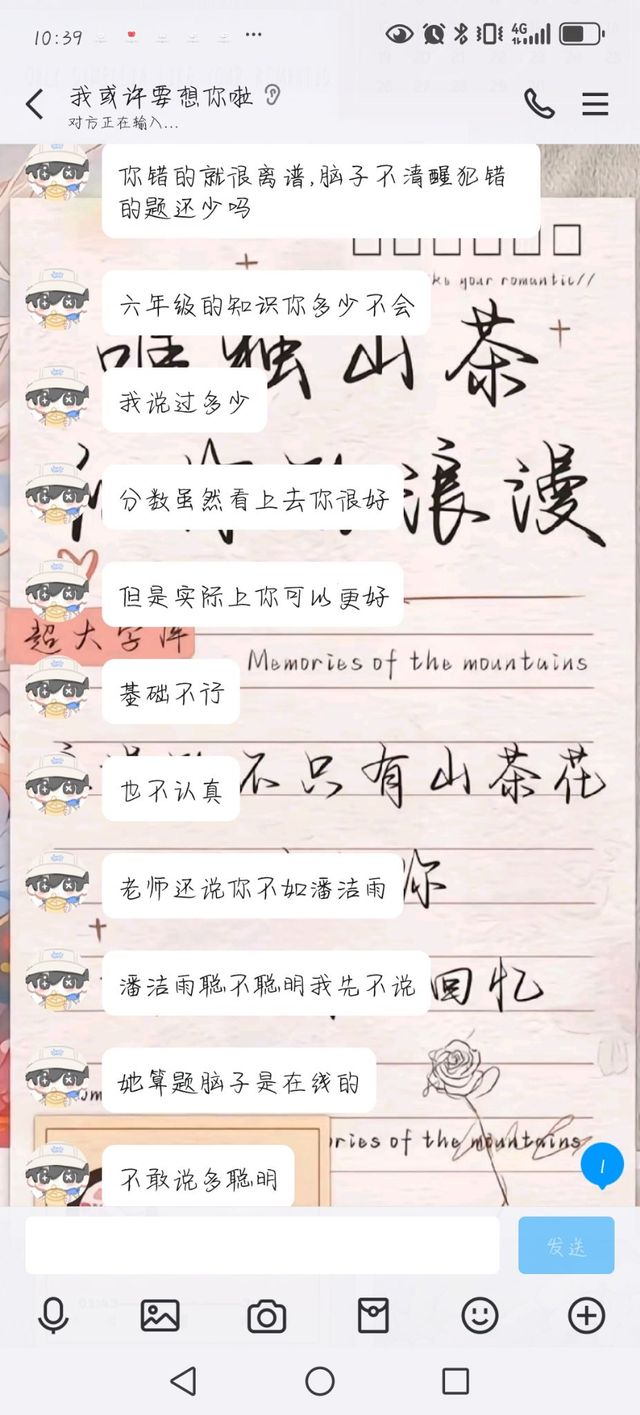 10:39
4G
我或许要想你啦
对方正在输入...
你错的就很离谱,脑子不清醒犯错
的题还少吗
your romantic//
六年级的知识你多少不会
唯独山茶
我说过多少
分数虽然看上去你很好
浪漫
但是实际上你可以更好
超大字库
Memories of the mountains
基础不行
不只有山茶花
也不认真
老师还说你不如潘洁雨
你
潘洁雨聪不聪明我先不说
回忆
她算题脑子是在线的
ories of the mountains
不敢说多聪明
1
发送